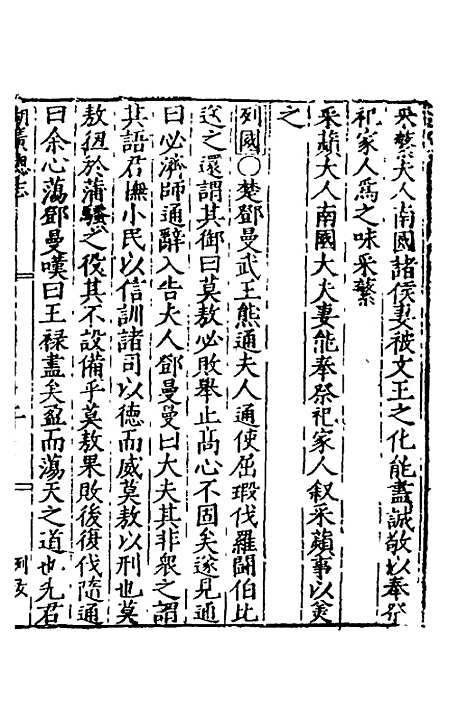 采蘩夫人南國諸侯妻被文王之化能盡誠敬以奉祭
祀家人爲之味采蘩
采蘋大人南國大夫妻能奉祭祀家人叙采蘋事以美
之
列國〇楚鄧曼武王熊通夫人通使屈瑕伐羅鬬伯比
送之還謂其御曰莫敖必敗舉止高心不固矣遂見通
曰必濟師通辭入告夫人鄧曼曼曰大夫其非衆之謂
其語君撫小民以信訓諸司以德而威莫敖以刑也莫
敖狃於蒲騷之役其不設備乎莫敖果敗後復伐隨通
曰余心蕩鄧曼嘆曰王禄盡矣盈而蕩天之道也先君
湖廣總志
列女